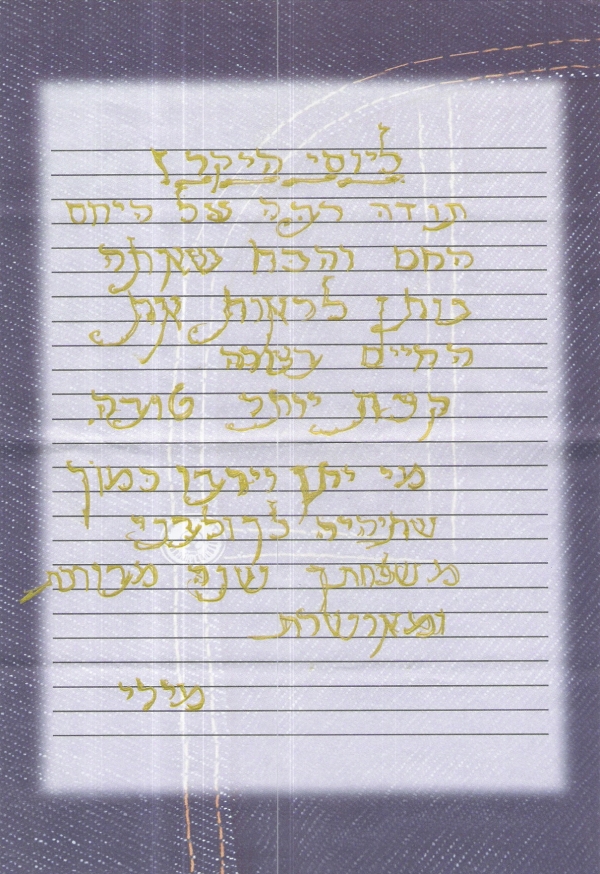 ליוסי היקר
תודה רבה על היחס
החם והבח שאתה
נותן לראות את
החיים בצורה
קצת יותר טובה.
מי יתן וירבו כמוך
שתהיה לך ולבני
משפחתך שנה מבורכת
ומאושרת
מילי